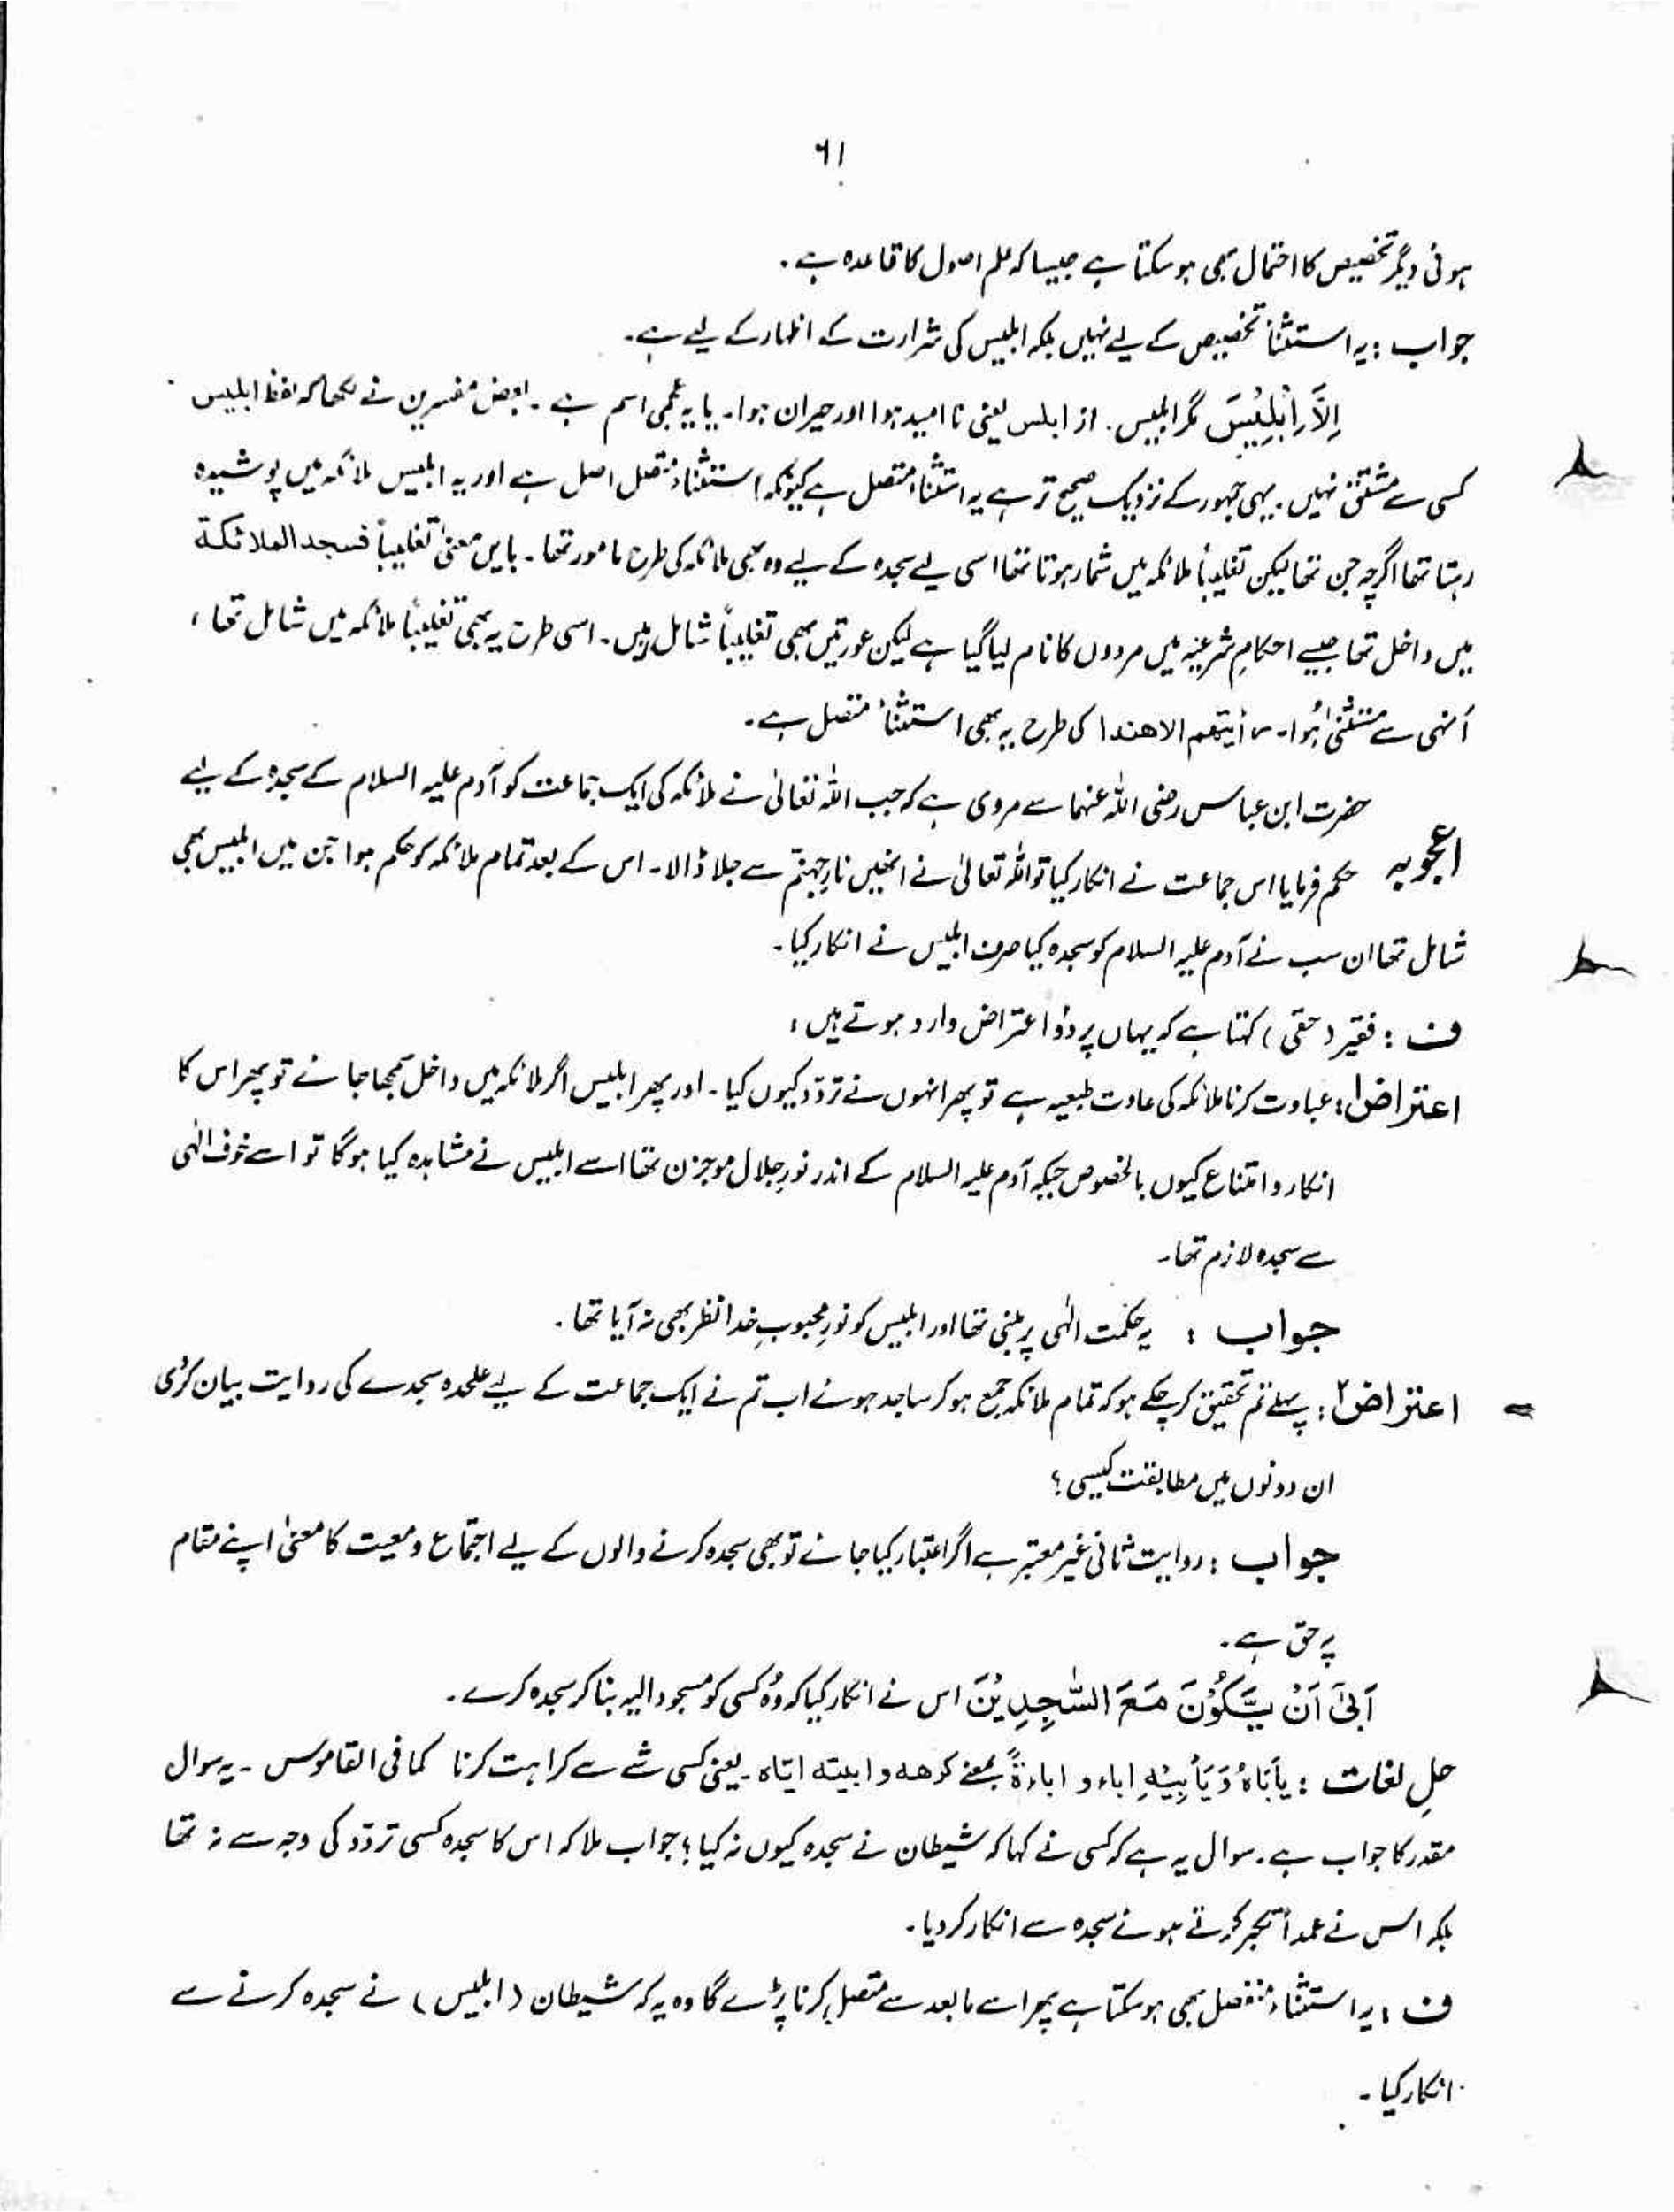 ٦١
ہوئی دیگر تخصیص کا احتمال بھی ہو سکتا ہے جیسا کہ علم اصول کا قاعدہ ہے ۔
جواب : یہ استثنأ تخصیص کے لیے نہیں بلکہ ابلیس کی شرارت کے اظہار کے لیے ہے۔
اِلَّآ اِبْلِیْسَ مگر ابلیس ۔ از ابلس یعنی نا امید ہوا اور حیران ہوا۔ یا یہ عجمی اسم ہے ۔ بعض مفسرین نے لکھا کہ لفظ ابلیس
کسی سے مشتق نہیں ۔ یہی جمہور کے نزدیک صحیح تر ہے یہ استثنأ متصل ہے کیونکہ استثناء متصل اصل ہے اور یہ ابلیس ملائکہ میں پوشیدہ
رہتا تھا اگرچہ جن تھا لیکن تغلیباً ملائکہ میں شمار ہوتا تھا اسی لیے سجدہ کے لیے وہ بھی ملائکہ کی طرح مامور تھا ۔ بایں معنیٰ تغلیباً فسجد الملائکة
میں داخل تھا جیسے احکامِ شرعیہ میں مردوں کا نام لیا گیا ہے لیکن عورتیں بھی تغلیباً شامل ہیں ۔ اسی طرح یہ بھی تغلیباً ملائکہ میں شامل تھا ،
اُنہی سے مستثنیٰ ہُوا ۔ رأیتھم الا ھندا کی طرح یہ بھی استثنأ متصل ہے ۔
حضرت ابن عباس رضی اللہ عنہما سے مروی ہے کہ جب اللہ تعالیٰ نے ملائکہ کی ایک جماعت کو آدم علیہ السلام کے سجدہ کے لیے
اعجوبہ حکم فرمایا اس جماعت نے انکار کیا تو اللہ تعالیٰ نے انھیں نارِ جہنّم سے جلا ڈالا ۔ اس کے بعد تمام ملائکہ کو حکم ہوا جن میں ابلیس بھی
شامل تھا ان سب نے آدم علیہ السلام کو سجدہ کیا صرف ابلیس نے انکار کیا ۔
ف : فقیر (حقی) کہتا ہے کہ یہاں پر دو اعتراض وارد ہوتے ہیں :
اعتراض ١ : عبادت کرنا ملائکہ کی عادت طبعیہ ہے تو پھر انہوں نے تردّد کیوں کیا ۔ اور پھر ابلیس اگر ملائکہ میں داخل سمجھا جائے تو پھر اس کا
انکار و امتناع کیوں بالخصوص جبکہ آدم علیہ السلام کے اندر نورِ جلال موجزن تھا اسے ابلیس نے مشاہدہ کیا ہوگا تو اسے خوفِ الٰہی
سے سجدہ لازم تھا ۔
جواب : یہ حکمت الٰہی پر مبنی تھا اور ابلیس کو نورِ محبوبِ خدا نظر بھی نہ آیا تھا ۔
اعتراض ٢ : پہلے تم تحقیق کر چکے ہو کہ تمام ملائکہ جمع ہو کر ساجد ہوئے اب تم نے ایک جماعت کے لیے علٰحدہ سجدے کی روایت بیان کر دی
ان دونوں میں مطابقت کیسی ؟
جواب : روایت ثانی غیر معتبر ہے اگر اعتبار کیا جائے تو بھی سجدہ کرنے والوں کے لیے اجتماع و معیت کا معنیٰ اپنے مقام
پر حق ہے ۔
اَبٰیٓ اَنْ یَّکُوْنَ مَعَ السّٰجِدِیْنَ اس نے انکار کیا کہ وُہ کسی کو مسجود الیہ بنا کر سجدہ کرے ۔
حلِ لغات : یأبَاہُ وَ یَأبِیْہِ اباء و اباءةً بمعنے کرھہ و ابیتہ ایّاہ ۔ یعنی کسی شے سے کراہت کرنا کما فی القاموس ۔ یہ سوال
مقدر کا جواب ہے ۔ سوال یہ ہے کہ کسی نے کہا کہ شیطان نے سجدہ کیوں نہ کیا ؛ جواب ملا کہ اس کا سجدہ کسی تردّد کی وجہ سے نہ تھا
بلکہ اس نے عمداً تکبر کرتے ہوئے سجدہ سے انکار کر دیا ۔
ف : یہ استثناء منفصل بھی ہو سکتا ہے پھر اسے مابعد سے متصل کرنا پڑے گا وہ یہ کہ شیطان (ابلیس) نے سجدہ کرنے سے
انکار کیا ۔